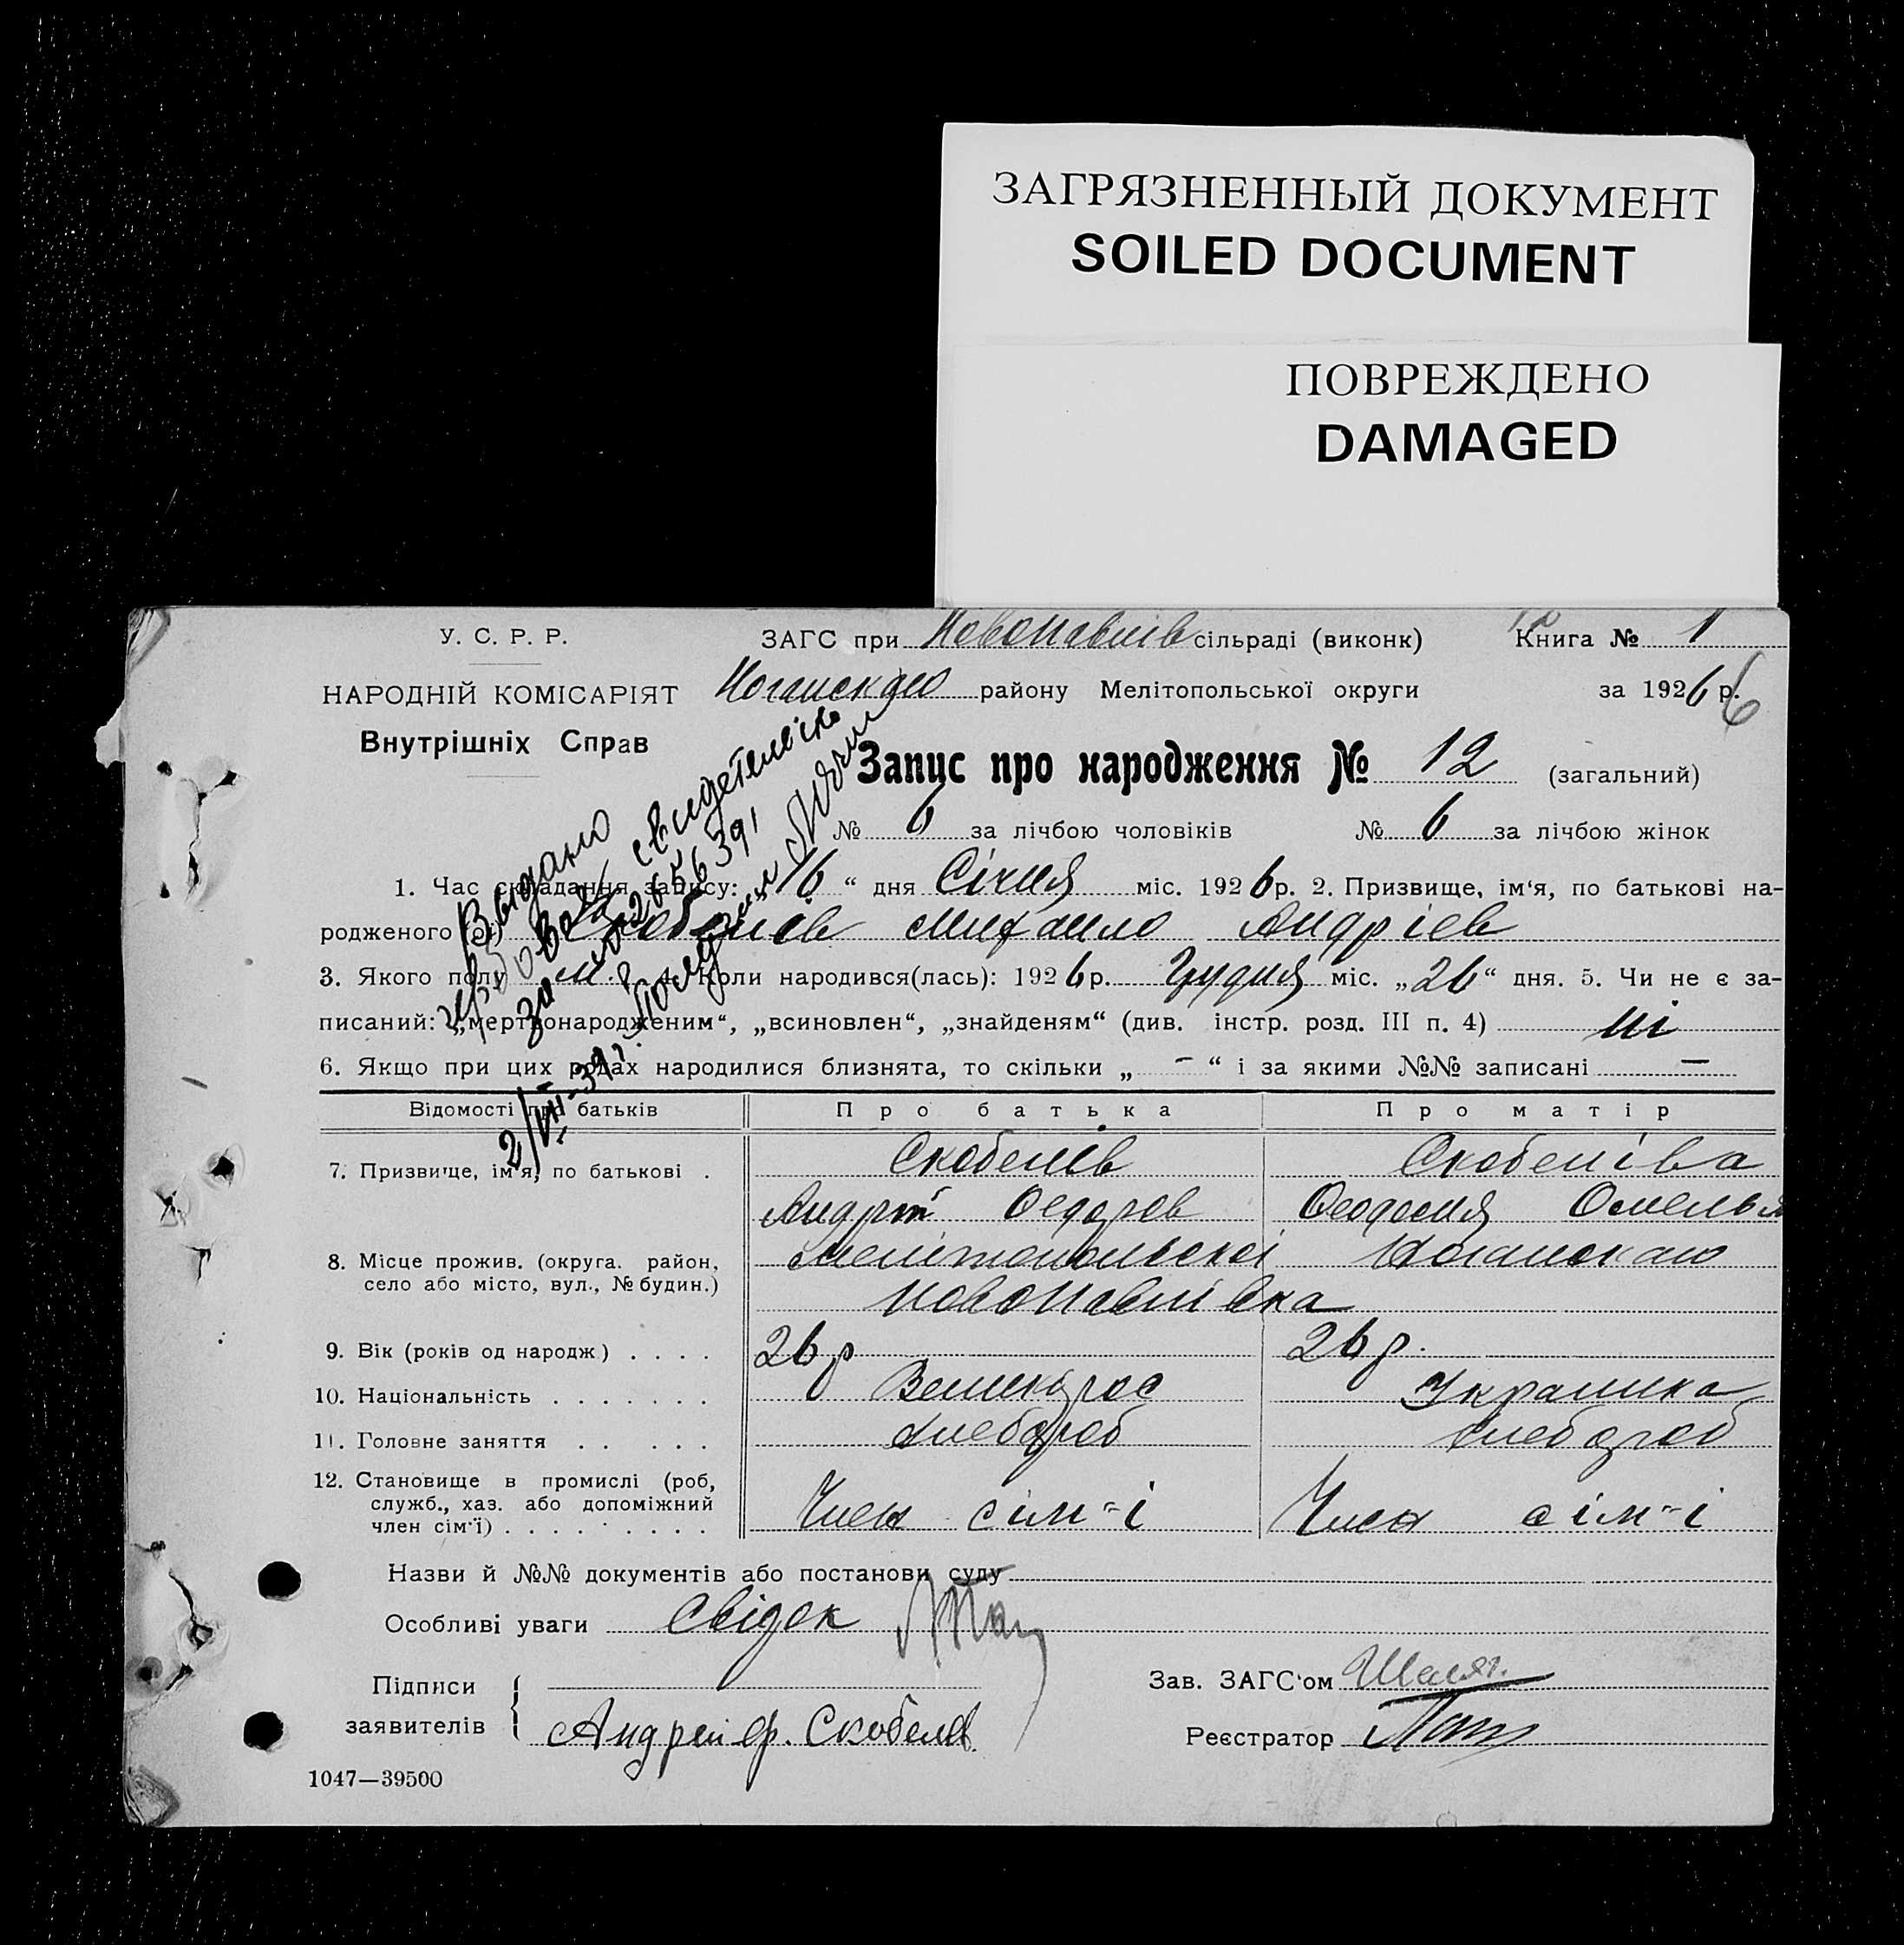 ЗАГРЯЗНЕННЫЙ ДОКУМЕНТ
SOILED DOCUMENT
ПОВРЕЖДЕНО
DAMAGED
У. С. Р. Р.
ЗАГС при Новопавлів сільраді (виконк) Книга № 1
НАРОДНІЙ КОМІСАРІЯТ
Ногайскаго району Мелітопольської округи за 1926 р. 6
Внутрішніх Справ
Запис про народження № 12 (загальний)
№ 6 за лічбою чоловіків № 6 за лічбою жінок
Выдано
свидетельство
за № 265639
2/VII-39 г.
1. Час складання запису: 16 “ дня Січня міс. 1926 р. 2. Призвище, ім‘я, по батькові на-
родженого Скобелєв Михайло Андріев
3. Якого полу м. 4. Коли народився(лась): 1926 р. Грудня міс. „26“ дня. 5. Чи не є за-
писаний: „мертвонародженим“, „всиновлен“, „знайденям“ (див. інстр. розд. III п. 4) ні
6. Якщо при цих родах народилися близнята, то скільки „ - “ і за якими №№ записані —
Відомості про батьків Про батька Про матір
7. Призвище, ім‘я, по батькові . Скобелів Скобеліва
Андрій Федоров Феодосия Омельян
8. Місце прожив. (округа. район, Мелітопольскої Ногайскаго
село або місто, вул., № будин.) Новопавлівка
9. Вік (років од народж) . . . . 26 р 26 р.
10. Національність . . . . . . . Великорос Украинка
11. Головне заняття . . . . . Хлебороб Хлебороб
12. Становище в промислі (роб,
служб., хаз. або допоміжний
член сім‘ї) . . . . . . . . . Член сім-і Член сім-і
Назви й №№ документів або постанови суду
Особливі уваги Свідок
Підписи
заявителів Андрей Ф. Скобелев
Зав. ЗАГС‘ом
Реєстратор
1047—39500